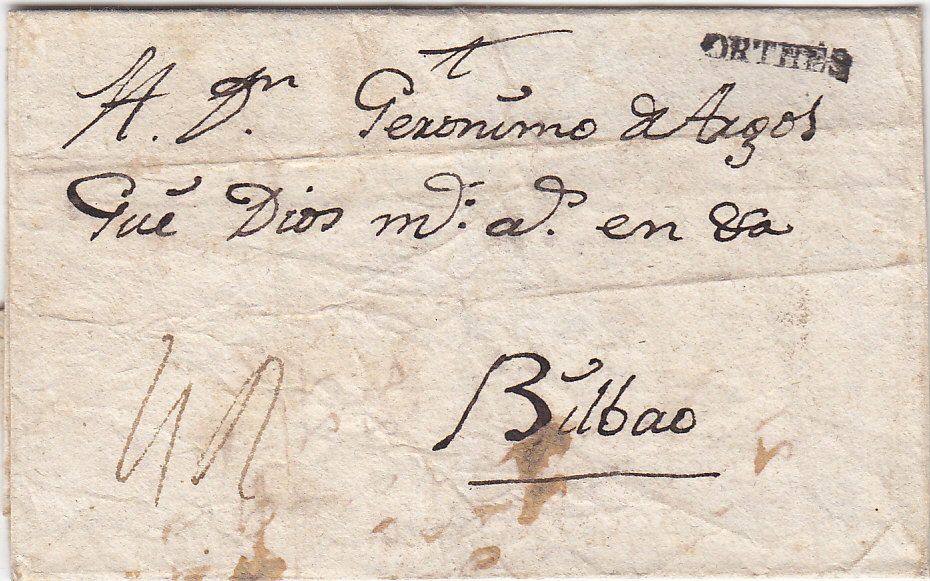 ORTHES
A. Dn Geronimo de Argos
Gue Dios ms. as. en Va
Bilbao